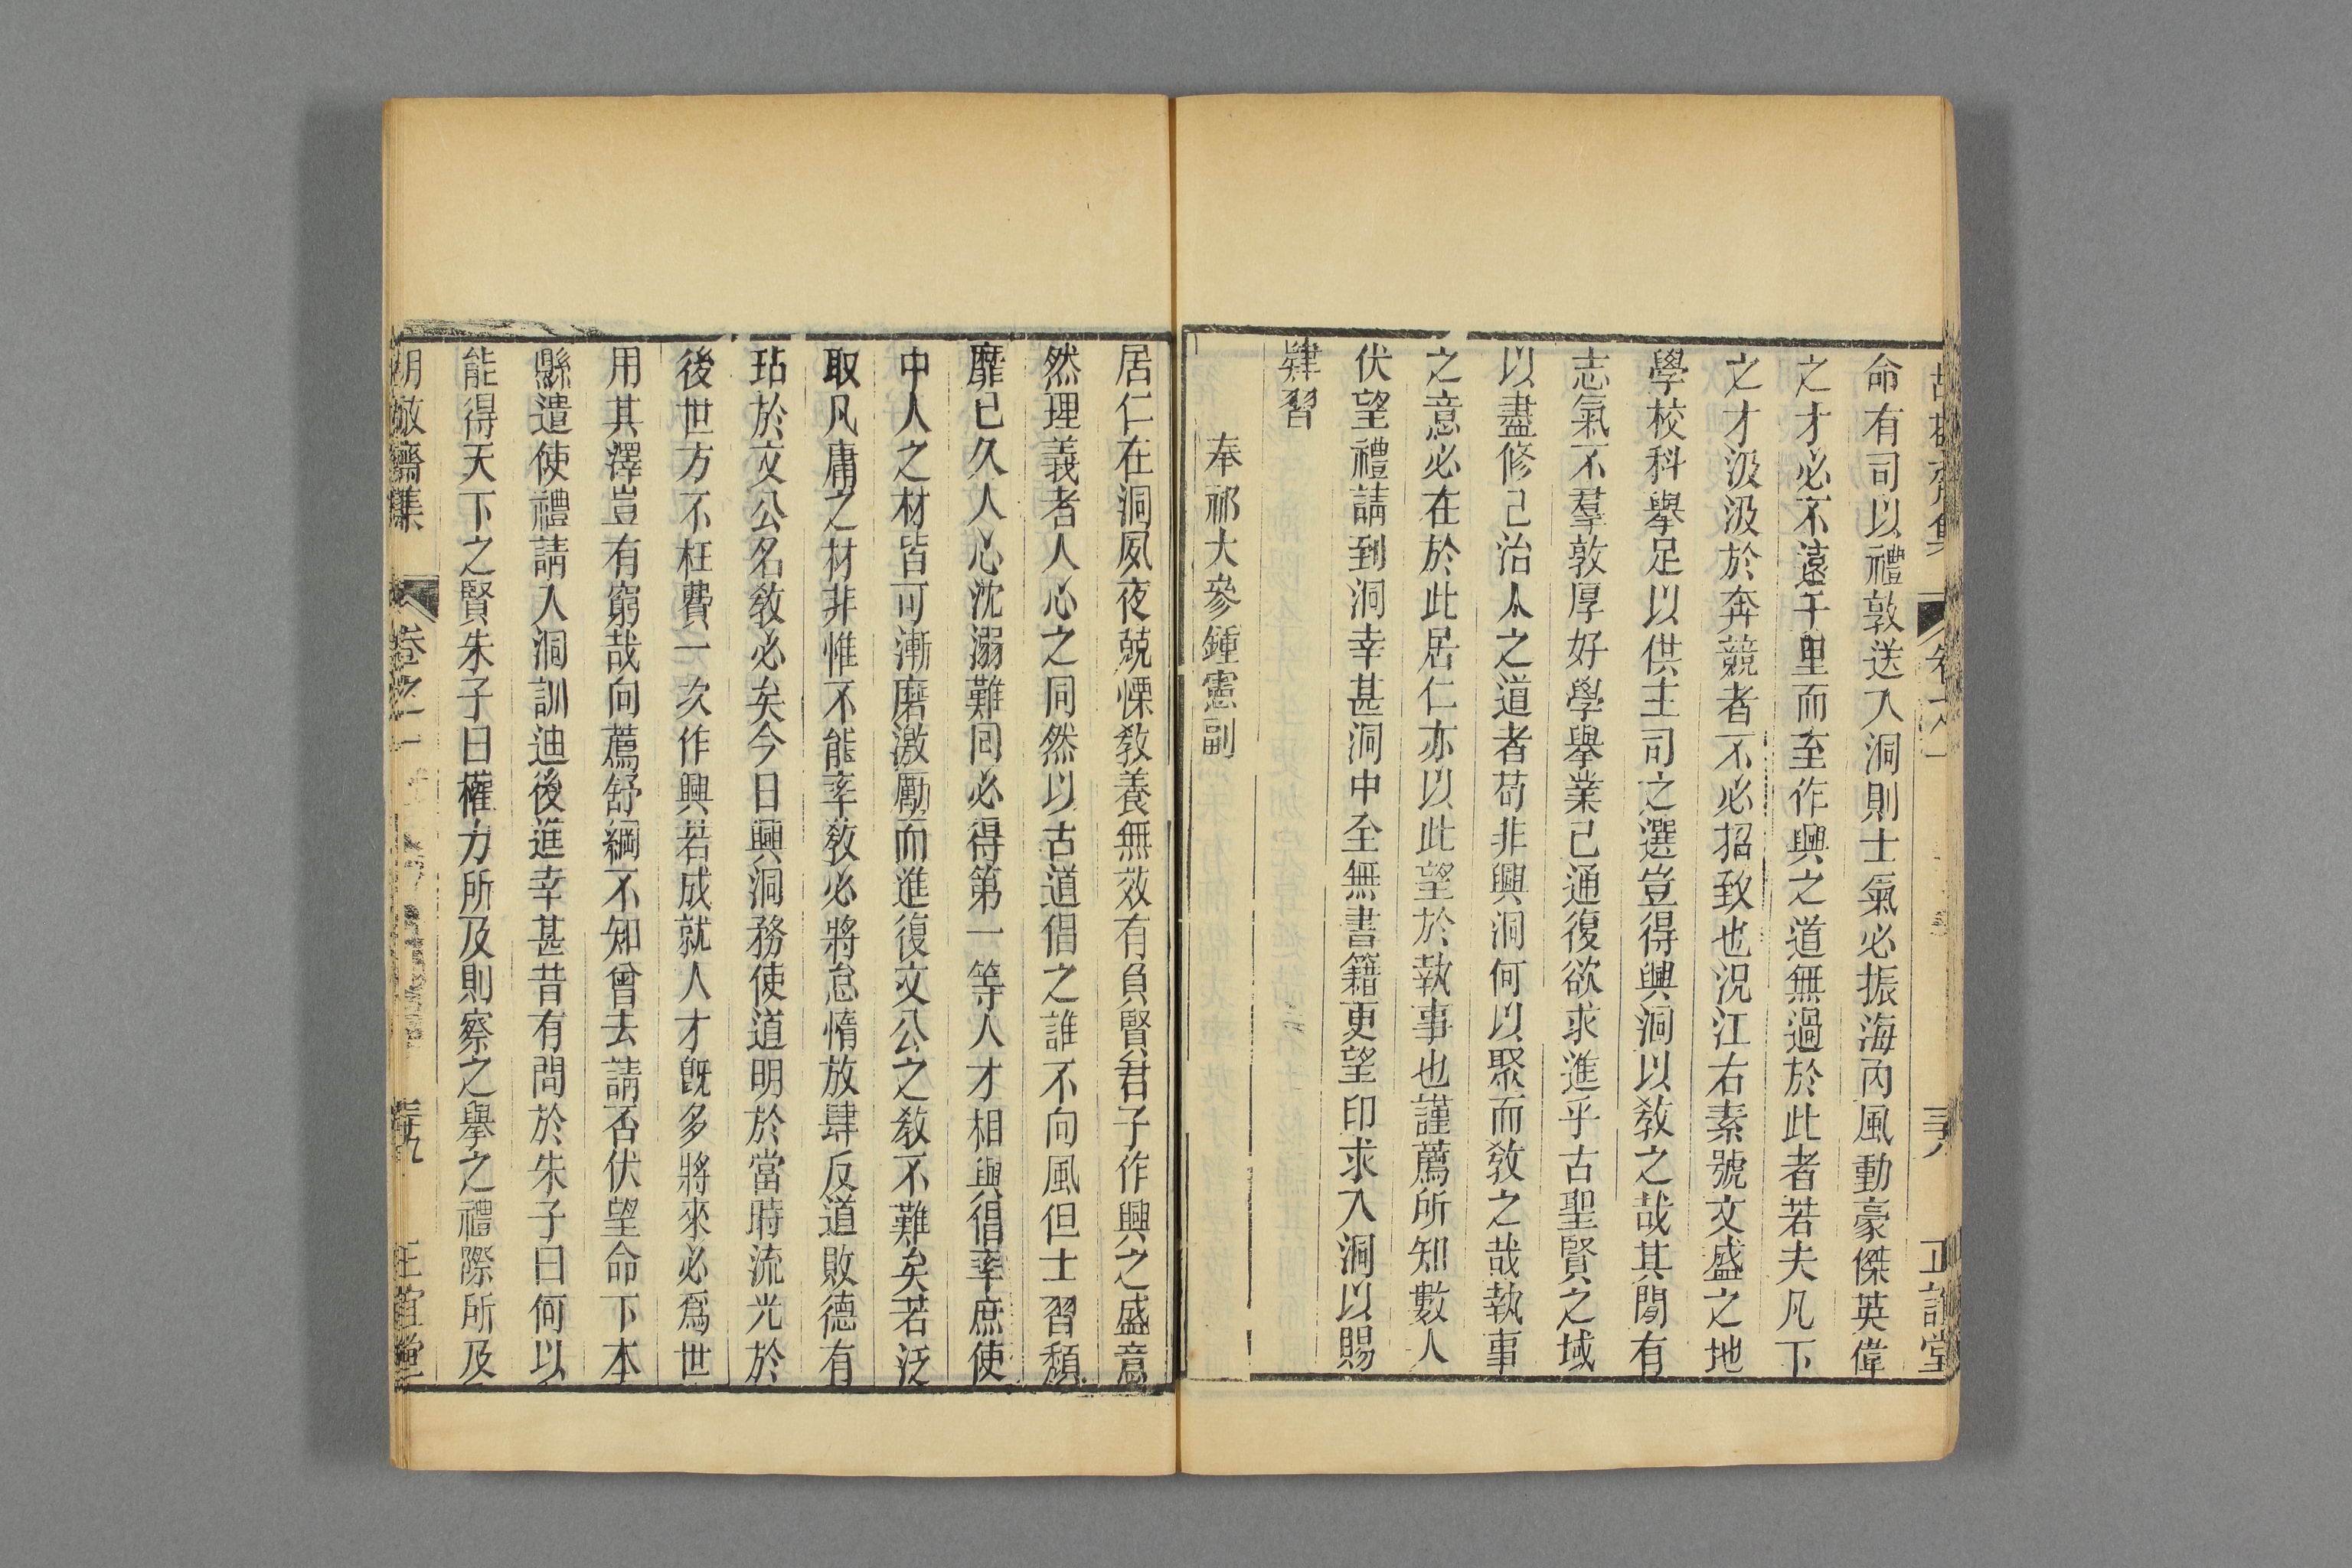 命有司以禮敦送入洞則士氣必振海內風動豪傑英偉
之才必不遠千里而至作興之道無過於此者若夫凡下
之才汲汲於奔競者不必招致也況江右素號文盛之地
學校科舉足以供主司之選豈得興洞以敎之哉其間有
志氣不羣敦厚好學舉業已通復欲求進乎古聖賢之域
以盡修己治人之道者苟非興洞何以聚而敎之哉執事
之意必在於此居仁亦以此望於執事也謹薦所知數人
伏望禮請到洞幸甚洞中全無書籍更望印求入洞以賜
肄習
奉祁大參鍾憲副
居仁在洞夙夜兢慄敎養無效有負賢君子作興之盛意
然理義者人心之同然以古道倡之誰不向風但士習頹
靡已久人心沈溺難回必得第一等人才相與倡率庶使
中人之材皆可漸磨激勵而進復文公之敎不難矣若泛
取凡庸之材非惟不能率敎必將怠惰放肆反道敗德有
玷於文公名敎必矣今日興洞務使道明於當時流光於
後世方不枉費一次作興若成就人才旣多將來必爲世
用其澤豈有窮哉向薦舒綱不知曾去請否伏望命下本
縣遣使禮請入洞訓迪後進幸甚昔有問於朱子曰何以
能得天下之賢朱子曰權力所及則察之舉之禮際所及
胡敬齋集 卷之一 三十九 正誼堂